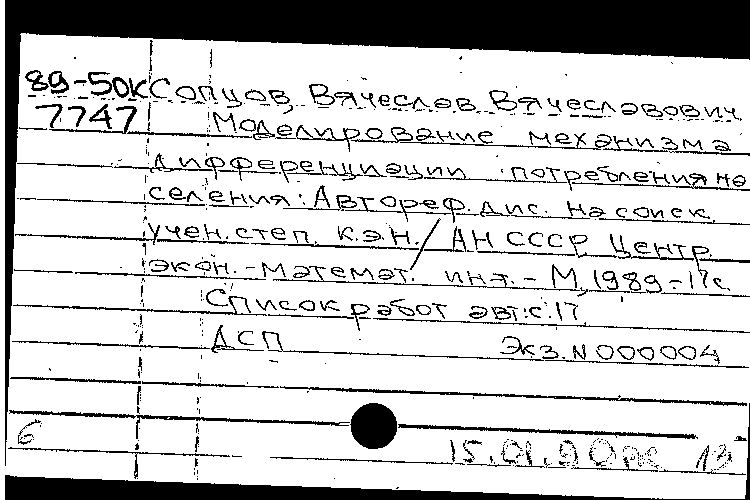 89-50К Сопцов, Вячеслав Вячеславович
7747 Моделирование механизма
дифференциации потребления на
селения: Автореф. дис. на соиск.
учен. степ. к.э.н. / АН СССР Центр.
экон.-математ. инт. - М, 1989 - 17с.
Список работ авт.: с. 17
ДСП Экз. N 000004
6 15.01.90 рк 13